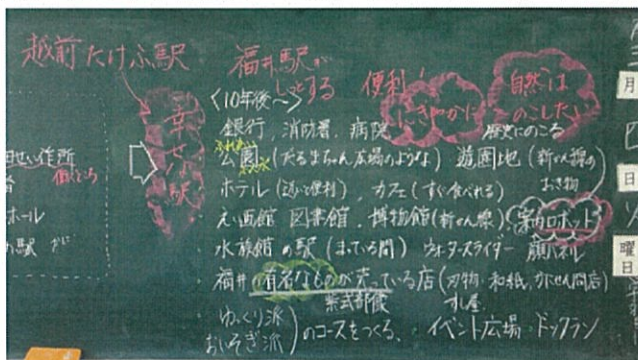 越前たけふ駅
福井駅が
しっとする
便利！
にぎやかに
自然は
のこしたい
幸せな駅
〈10年後〜〉
銀行，消防署，病院
歴史にのこる
公園（だるまちゃん広場のような）遊園地（新かん線の
おき物
ホテル（近いと便利），カフェ（すぐ食べれる）
えい画館 図書館．博物館（新かん線）．案内ロボット
水族館の駅（まっている間）ウォータースライダー 顔パネル
福井の有名なものが売っている店（刃物・和紙
紫式部像
ゆっくり派
おいそぎ派
のコースをつくる．・イベント広場・ドッグラン
作所
ホール
の駅
月
日
日
曜
日